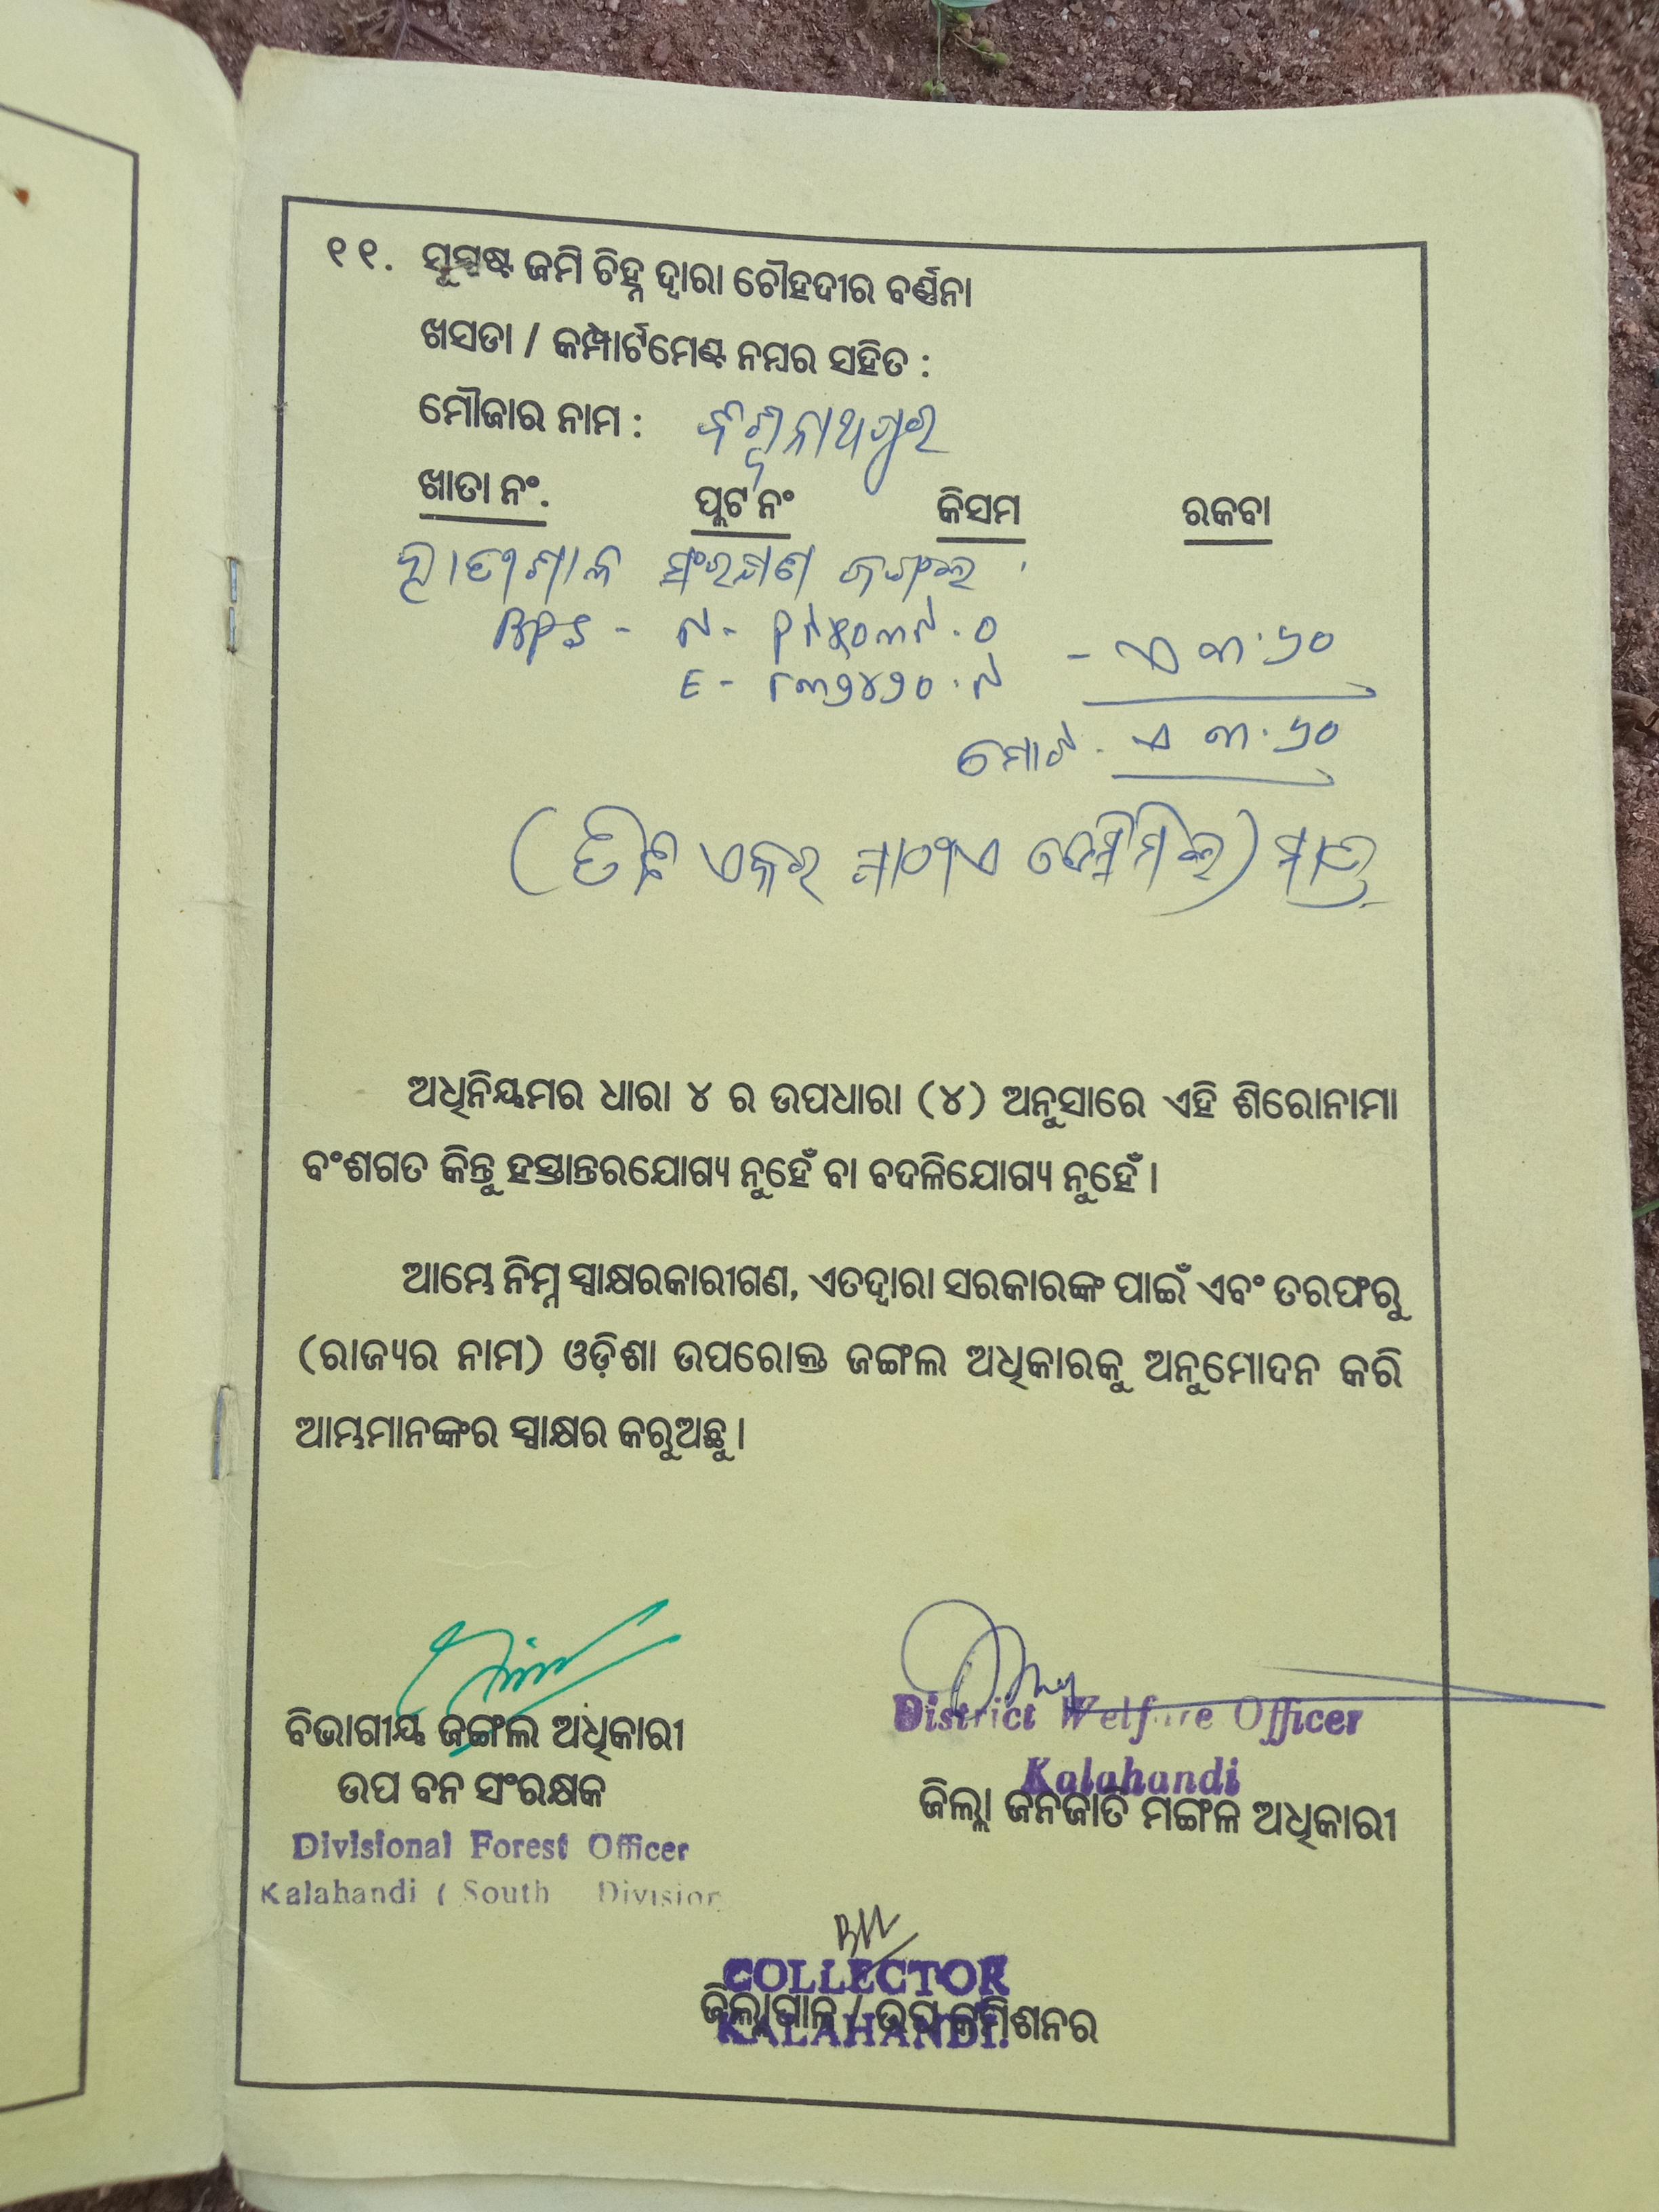 ୧୧. ସୁସ୍ପଷ୍ଟ ଜମି ଚିହ୍ନ ଦ୍ୱାରା ଚୌହଦୀର ବର୍ଣ୍ଣନା
ଖସଡା / କମ୍ପାର୍ଟମେଣ୍ଟ ନମ୍ବର ସହିତ :
ମୌଜାର ନାମ : ବିଶ୍ୱନାଥପୁର
ଖାତା ନଂ. ପ୍ଲଟ ନଂ କିସମ ରକବା
ସଂରକ୍ଷଣ ଜଙ୍ଗଲ
- ଏ ୩.୬୦
ମୋଟ - ଏ ୩.୬୦
(ତିନି ଏକର ଷାଠିଏ ଡେସିମିଲ) ମାତ୍ର
ଅଧିନିୟମର ଧାରା ୪ ର ଉପଧାରା (୪) ଅନୁସାରେ ଏହି ଶିରୋନାମା
ବଂଶଗତ କିନ୍ତୁ ହସ୍ତାନ୍ତରଯୋଗ୍ୟ ନୁହେଁ ବା ବଦଳିଯୋଗ୍ୟ ନୁହେଁ ।
ଆମ୍ଭେ ନିମ୍ନ ସ୍ୱାକ୍ଷରକାରୀଗଣ, ଏତଦ୍ୱାରା ସରକାରଙ୍କ ପାଇଁ ଏବଂ ତରଫରୁ
(ରାଜ୍ୟର ନାମ) ଓଡ଼ିଶା ଉପରୋକ୍ତ ଜଙ୍ଗଲ ଅଧିକାରକୁ ଅନୁମୋଦନ କରି
ଆମ୍ଭମାନଙ୍କର ସ୍ୱାକ୍ଷର କରୁଅଛୁ ।
District Welfare Officer
Kalahandi
ବିଭାଗୀୟ ଜଙ୍ଗଲ ଅଧିକାରୀ
ଉପ ବନ ସଂରକ୍ଷକ
ଜିଲ୍ଲା ଜନଜାତି ମଙ୍ଗଳ ଅଧିକାରୀ
Divisional Forest Officer
Kalahandi ( South Division
COLLECTOR
ଜିଲ୍ଲାପାଳ / ଉପ କମିଶନର
KALAHANDI.